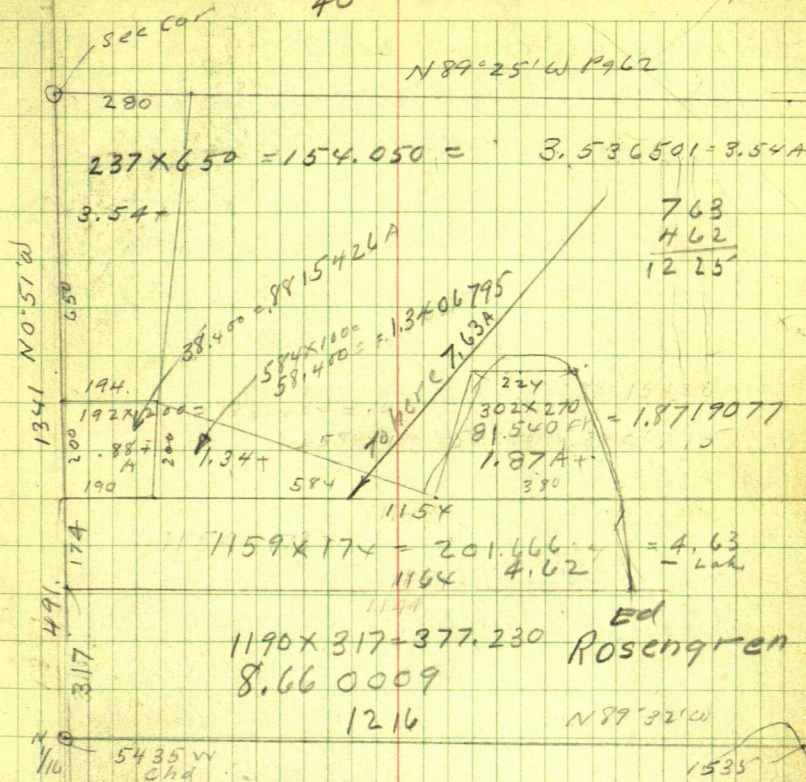 40
sec cor
N 89°25'W Pg 62
280
237 X 650 = 154.050 = 3.536501 = 3.54 A
3.54+
763
462
1225
1341 N0°51'W
650
38.400 = .8815426 A
584X100=
58.400 = = 1.3406795
to here 7.63A
194.
192X200=
.88+
A
200
200
190
1.34+
584
224
302 X 270
81.540 ft = 1.8719077
1.87A+
380
1154
174
1159 X 174 = 201.666 = 4.63
1164 4.62 - Lak
491
317
1190 X 317 = 377.230
8.660009
1216
Ed
Rosengren
N 89°32'W
N
1/16
5435 W
Chd
1535